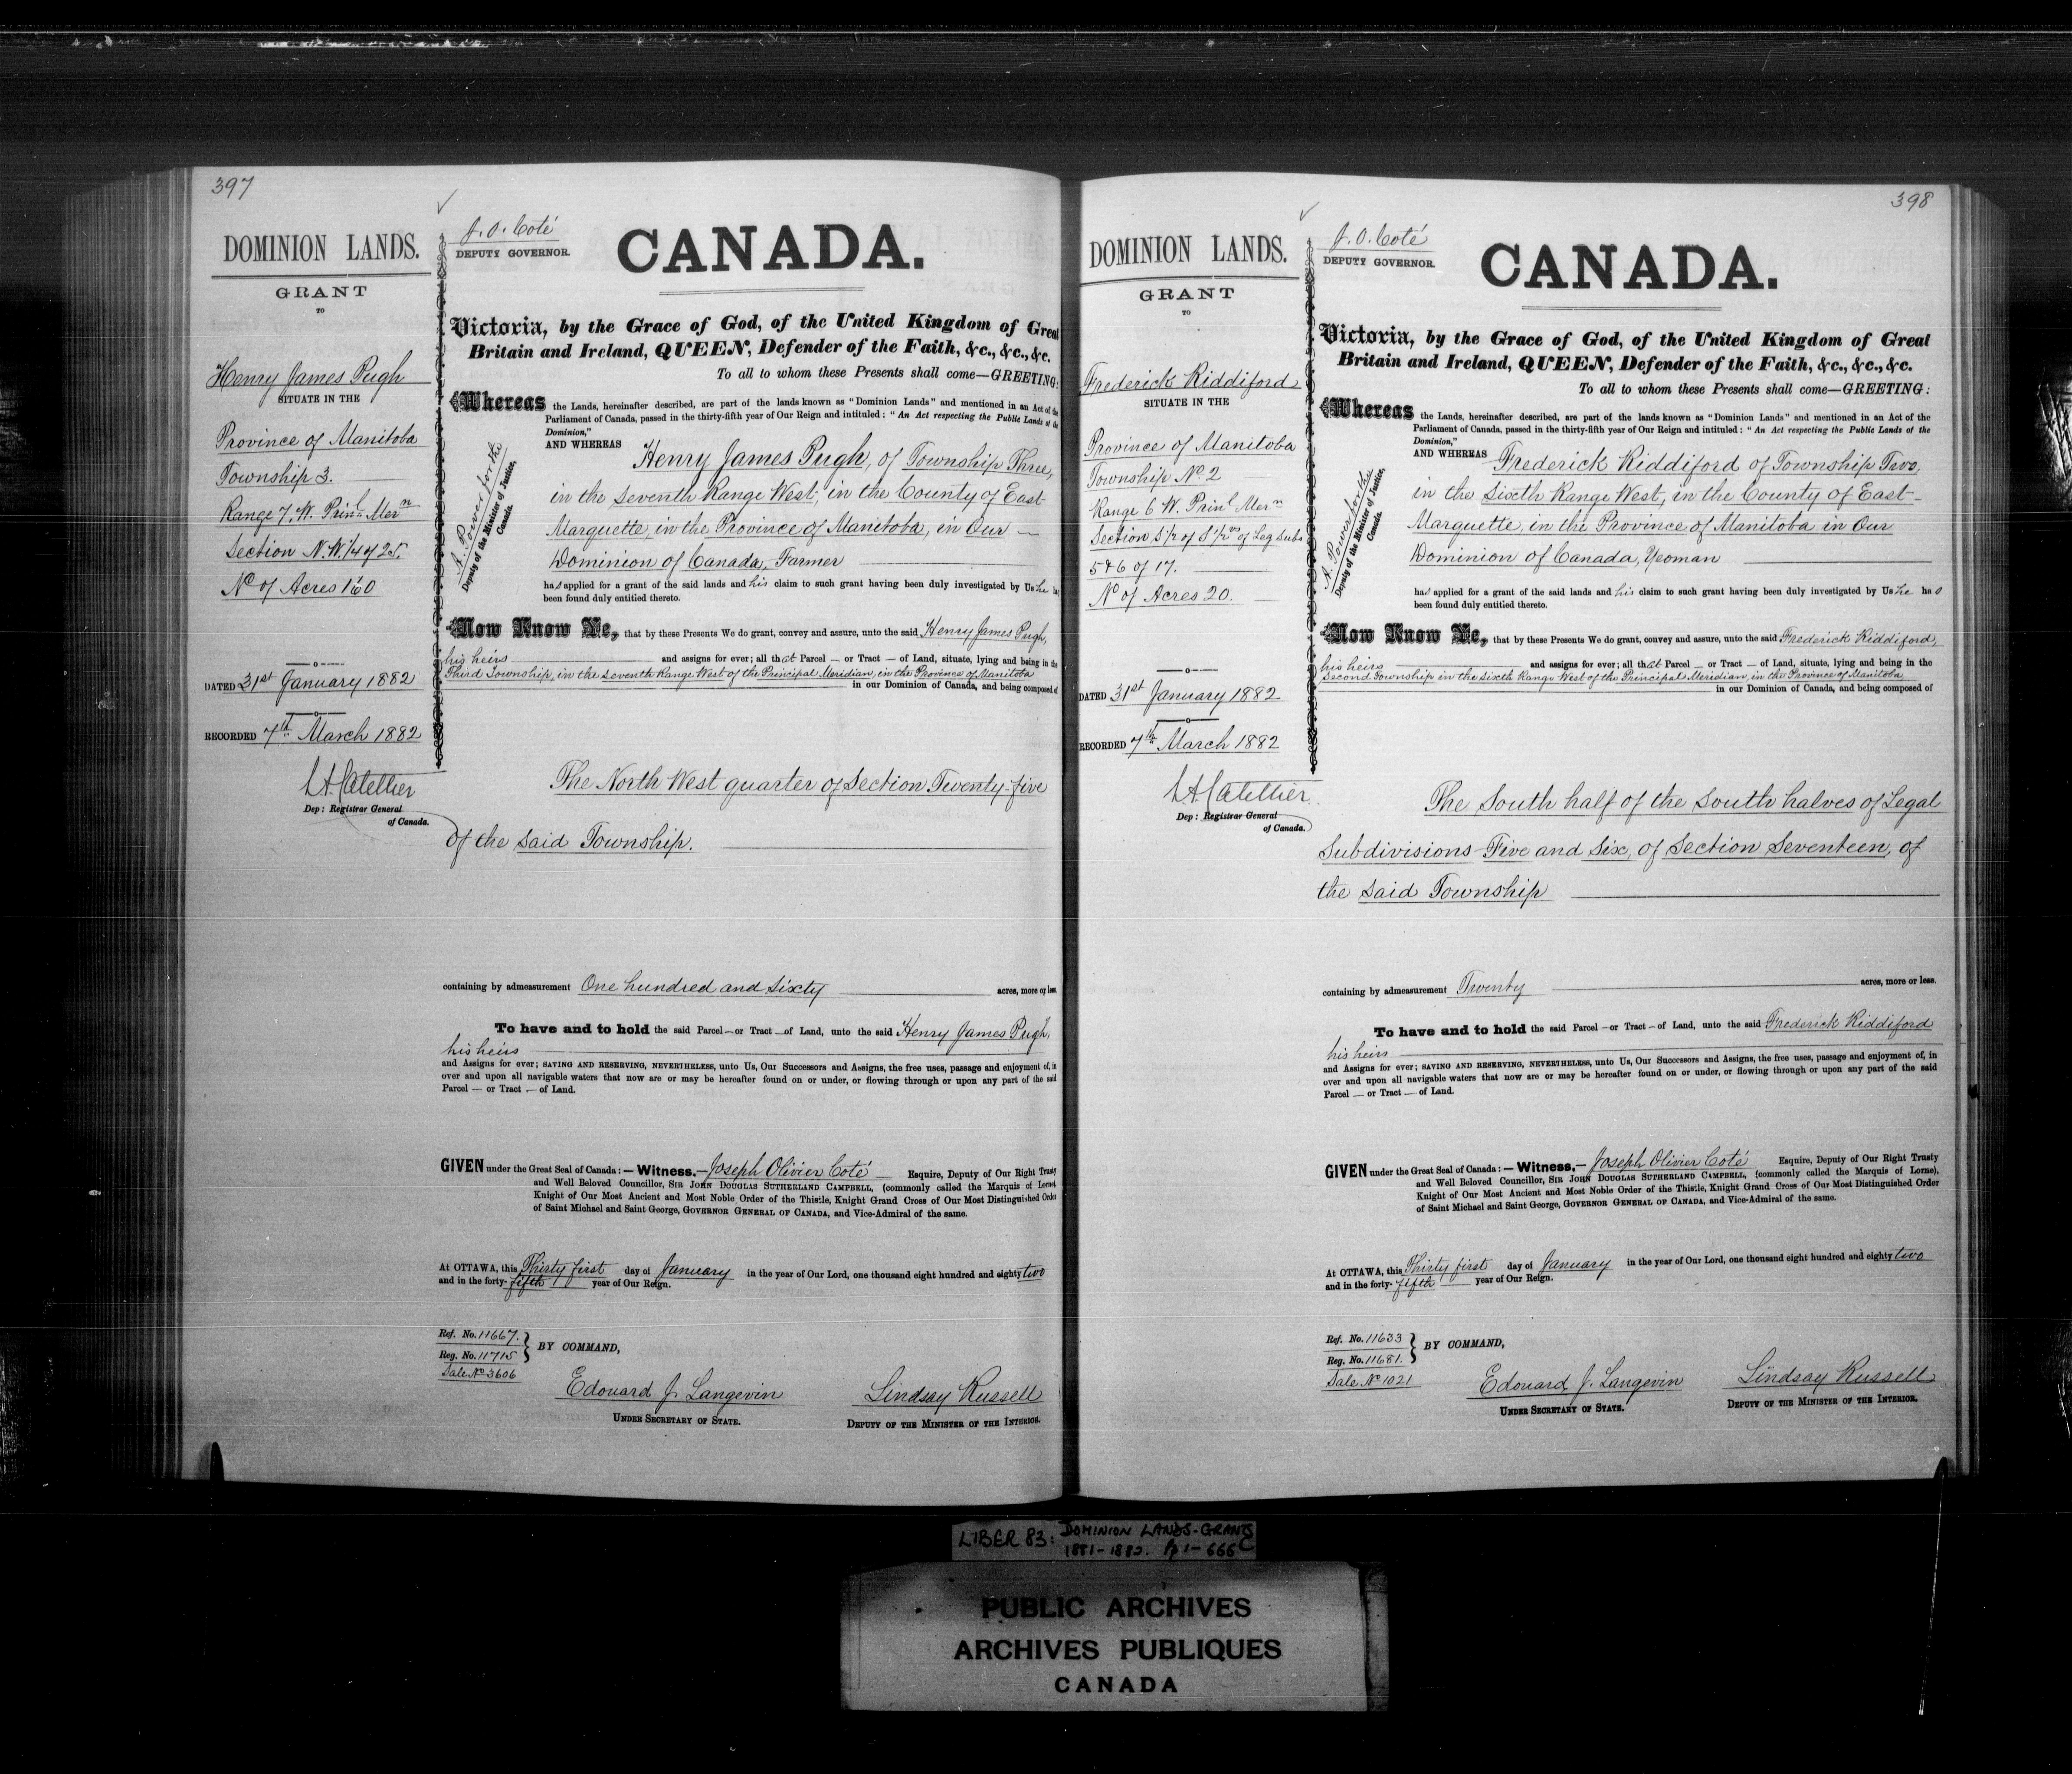 397
DOMINION LANDS.
GRANT
TO
Henry James Pugh
SITUATE IN THE
Province of Manitoba
Township 3.
Range 7. W. Prin.l Mer.n
Section N.W. 1/4 of 25.
No of Acres 160
DATED 31st January 1882
RECORDED 7th March 1882
Dep: Registrar General
of Canada.
J. O. Coté
DEPUTY GOVERNOR.
CANADA.
Victoria, by the Grace of God, of the United Kingdom of Great
Britain and Ireland, QUEEN, Defender of the Faith, &c., &c., &c.
To all to whom these Presents shall come—GREETING:
Whereas the Lands, hereinafter described, are part of the lands known as "Dominion Lands" and mentioned in an Act of the
Parliament of Canada, passed in the thirty-fifth year of Our Reign and intituled: "An Act respecting the Public Lands of the
Dominion,"
A. Power for the
Deputy of the Minister of Justice,
Canada.
AND WHEREAS Henry James Pugh, of Township Three,
in the Seventh Range West, in the County of East
Marquette, in the Province of Manitoba, in Our
Dominion of Canada, Farmer
has applied for a grant of the said lands and his claim to such grant having been duly investigated by Us he has
been found duly entitled thereto.
Now Know Ye, that by these Presents We do grant, convey and assure, unto the said Henry James Pugh,
his heirs and assigns for ever; all that Parcel — or Tract — of Land, situate, lying and being in the
Third Township, in the Seventh Range West of the Principal Meridian, in the Province of Manitoba
in our Dominion of Canada, and being composed of
The North West quarter of Section Twenty-five
of the said Township.
containing by admeasurement One hundred and Sixty acres, more or less.
To have and to hold the said Parcel — or Tract — of Land, unto the said Henry James Pugh,
his heirs
and Assigns for ever; SAVING AND RESERVING, NEVERTHELESS, unto Us, Our Successors and Assigns, the free uses, passage and enjoyment of, in
over and upon all navigable waters that now are or may be hereafter found on or under, or flowing through or upon any part of the said
Parcel — or Tract — of Land.
GIVEN under the Great Seal of Canada:—Witness,— Joseph Olivier Coté Esquire, Deputy of Our Right Trusty
and Well Beloved Councillor, SIR JOHN DOUGLAS SUTHERLAND CAMPBELL, (commonly called the Marquis of Lorne),
Knight of Our Most Ancient and Most Noble Order of the Thistle, Knight Grand Cross of Our Most Distinguished Order
of Saint Michael and Saint George, GOVERNOR GENERAL OF CANADA, and Vice-Admiral of the same.
At OTTAWA, this Thirty first day of January in the year of Our Lord, one thousand eight hundred and eighty two
and in the forty-fifth year of Our Reign.
Ref. No. 11667.
Reg. No. 11715
Sale No 3606
BY COMMAND,
Edouard J. Langevin
UNDER SECRETARY OF STATE.
Lindsay Russell
DEPUTY OF THE MINISTER OF THE INTERIOR.
398
DOMINION LANDS.
GRANT
TO
Frederick Riddiford
SITUATE IN THE
Province of Manitoba
Township No. 2
Range 6 W. Prin.l Mer.n
Section S 1/2 of S 1/2vs of Leg Subs
5 & 6 of 17.
No of Acres 20.
DATED 31st January 1882
RECORDED 7th March 1882
Dep: Registrar General
of Canada.
J. O. Coté
DEPUTY GOVERNOR.
CANADA.
Victoria, by the Grace of God, of the United Kingdom of Great
Britain and Ireland, QUEEN, Defender of the Faith, &c., &c., &c.
To all to whom these Presents shall come—GREETING:
Whereas the Lands, hereinafter described, are part of the lands known as "Dominion Lands" and mentioned in an Act of the
Parliament of Canada, passed in the thirty-fifth year of Our Reign and intituled: "An Act respecting the Public Lands of the
Dominion,"
A. Power for the
Deputy of the Minister of Justice,
Canada.
AND WHEREAS Frederick Riddiford of Township Two,
in the Sixth Range West, in the County of East-
Marquette, in the Province of Manitoba in Our
Dominion of Canada, Yeoman
has applied for a grant of the said lands and his claim to such grant having been duly investigated by Us he has
been found duly entitled thereto.
Now Know Ye, that by these Presents We do grant, convey and assure, unto the said Frederick Riddiford,
his heirs and assigns for ever; all that Parcel — or Tract — of Land, situate, lying and being in the
Second Township in the Sixth Range West of the Principal Meridian, in the Province of Manitoba
in our Dominion of Canada, and being composed of
The South half of the South halves of Legal
Subdivisions Five and Six, of Section Seventeen, of
the said Township
containing by admeasurement Twenty acres, more or less.
To have and to hold the said Parcel — or Tract — of Land, unto the said Frederick Riddiford
his heirs
and Assigns for ever; SAVING AND RESERVING, NEVERTHELESS, unto Us, Our Successors and Assigns, the free uses, passage and enjoyment of, in
over and upon all navigable waters that now are or may be hereafter found on or under, or flowing through or upon any part of the said
Parcel — or Tract — of Land.
GIVEN under the Great Seal of Canada:—Witness,— Joseph Olivier Coté Esquire, Deputy of Our Right Trusty
and Well Beloved Councillor, SIR JOHN DOUGLAS SUTHERLAND CAMPBELL, (commonly called the Marquis of Lorne),
Knight of Our Most Ancient and Most Noble Order of the Thistle, Knight Grand Cross of Our Most Distinguished Order
of Saint Michael and Saint George, GOVERNOR GENERAL OF CANADA, and Vice-Admiral of the same.
At OTTAWA, this Thirty first day of January in the year of Our Lord, one thousand eight hundred and eighty two
and in the forty-fifth year of Our Reign.
Ref. No. 11633
Reg. No. 11681.
Sale No 1021
BY COMMAND,
Edouard J. Langevin
UNDER SECRETARY OF STATE.
Lindsay Russell
DEPUTY OF THE MINISTER OF THE INTERIOR.
LIBER 83: DOMINION LANDS-GRANTS
1881-1882. Pp 1-666
PUBLIC ARCHIVES
ARCHIVES PUBLIQUES
CANADA